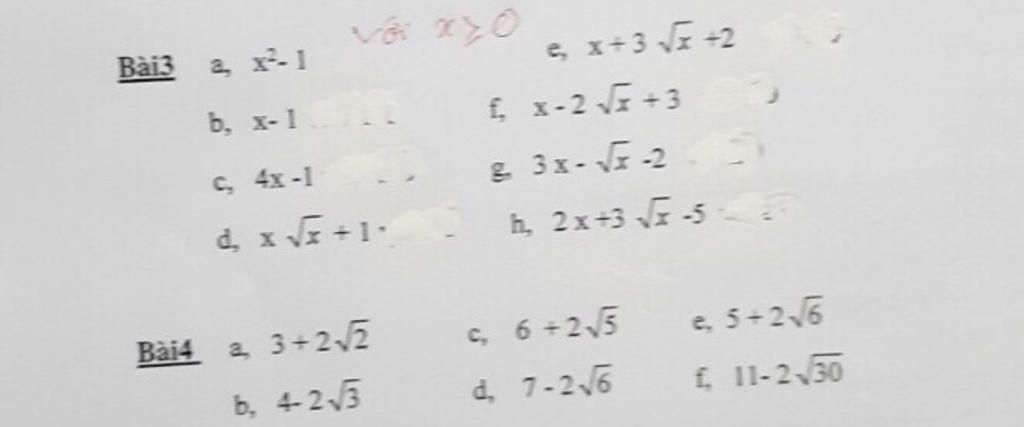 Với x ≥ 0
Bài3 a, x²- 1 e, x + 3 √x +2
b, x- 1 f, x - 2 √x + 3
c, 4x -1 g, 3 x - √x -2
d, x √x + 1 h, 2 x +3 √x -5
Bài4 a, 3 + 2√2 c, 6 + 2√5 e, 5 + 2√6
b, 4- 2√3 d, 7 - 2√6 f, 11- 2√30